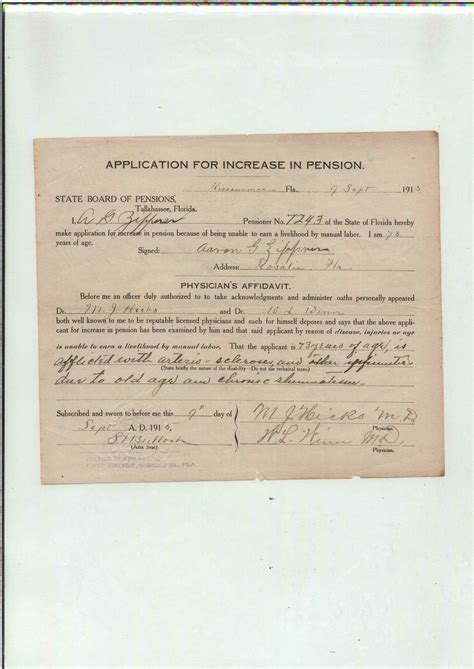 APPLICATION FOR INCREASE IN PENSION.
Kissimmee Fla., 9 Sept 191
STATE BOARD OF PENSIONS,
Tallahassee, Florida.
I, A G Zipperer Pensioner No. 7243 of the State of Florida hereby
make application for increase in pension because of being unable to earn a livelihood by manual labor. I am 73
years of age.
Signed: Aaron G Zipperer
Address: Rosalie, Fla
PHYSICIAN'S AFFIDAVIT.
Before me an officer duly authorized to to take acknowledgments and administer oaths personally appeared
Dr. M. J Hicks and Dr.
both well known to me to be reputable licensed physicians and each for himself deposes and says that the above applicant
for increase in pension has been examined by him and that said applicant by reason of disease, injuries or age
is unable to earn a livelihood by manual labor. That the applicant is 73 years of age, is
afflicted with arterio-sclerosis, and other infirmities
(State briefly the nature of the disability-Do not use technical terms)
due to old age and chronic rheumatism.
Subscribed and sworn to before me this 9th day of
Sept A. D. 191
(Affix Seal)
M J Hicks M.D.
Physician.
M.D.
Physician.